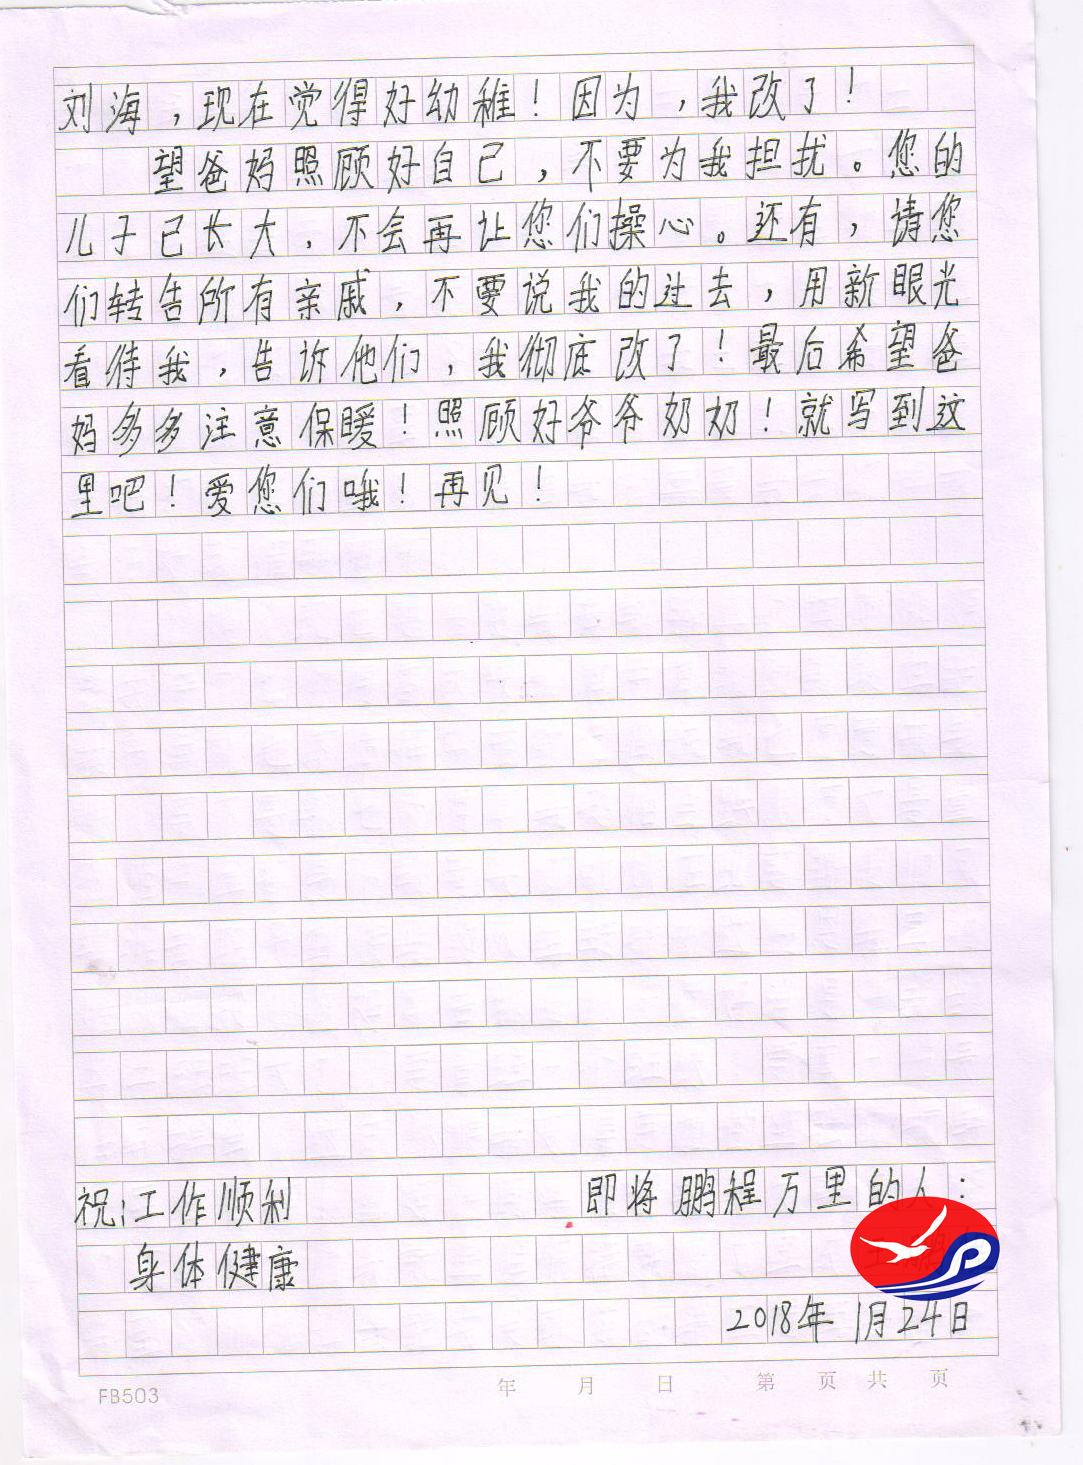 刘海，现在觉得好幼稚！因为，我改了！
望爸妈照顾好自己，不要为我担扰。您的
儿子已长大，不会再让您们操心。还有，请您
们转告所有亲戚，不要说我的过去，用新眼光
看待我，告诉他们，我彻底改了！最后希望爸
妈多多注意保暖！照顾好爷爷奶奶！就写到这
里吧！爱您们哦！再见！
祝：工作顺利 即将鹏程万里的人：
身体健康
2018年1月24日
FB503 年 月 日 第 页 共 页